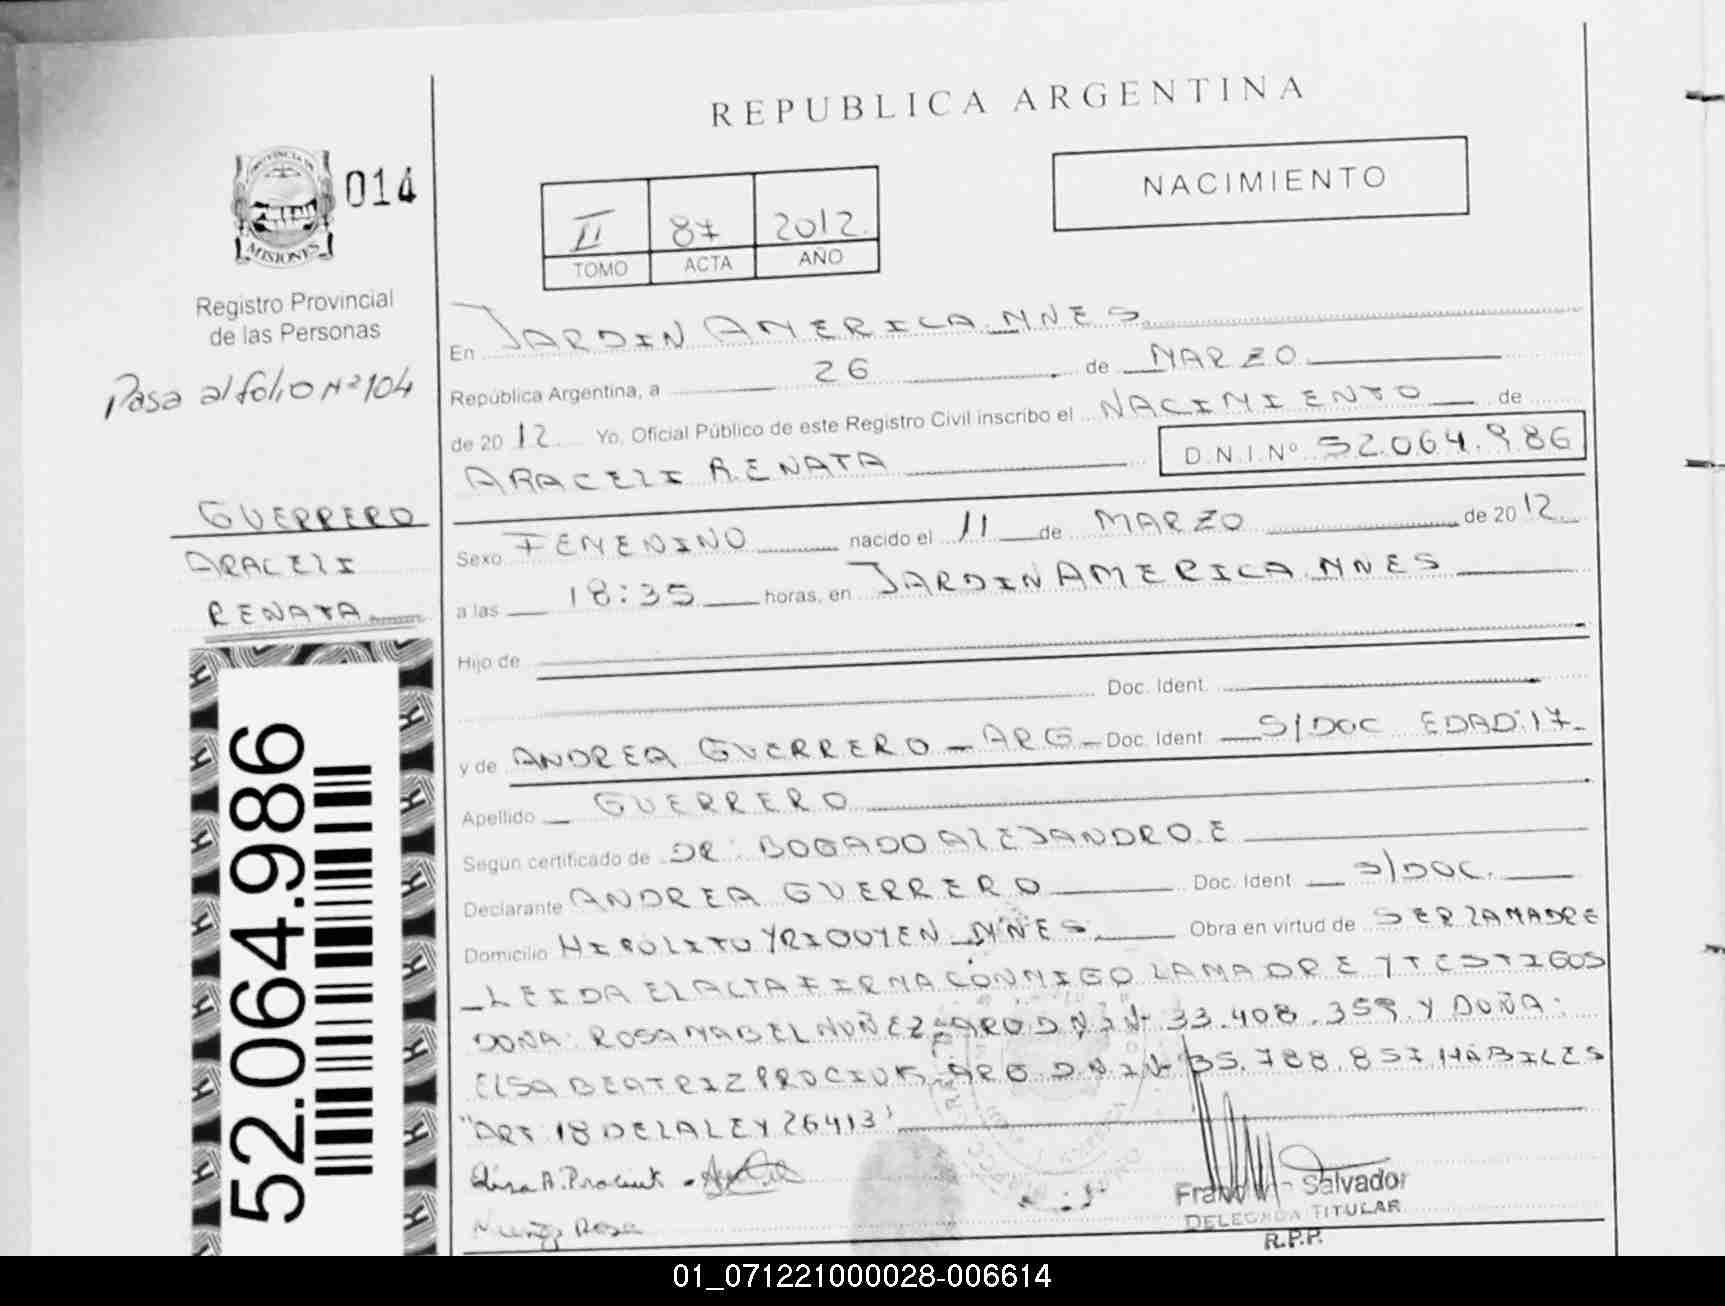 REPUBLICA ARGENTINA
NACIMIENTO
PROVINCIA DE
MISIONES
014
II 87 2012.
TOMO ACTA AÑO
Registro Provincial
de las Personas
Pasa al folio Nº 104
En JARDIN AMERICA. MNES
República Argentina, a 26 de MARZO
de 2012. Yo, Oficial Público de este Registro Civil inscribo el NACIMIENTO de
ARACELI RENATA D.N.I.Nº 52.064.986
GUERRERO
ARACELI
RENATA
Sexo FEMENINO nacido el 11 de MARZO de 2012.
a las 18:35 horas, en JARDIN AMERICA. MNES
Hijo de
Doc. Ident.
y de ANDREA GUERRERO - ARG - Doc. Ident. S/DOC EDAD:17-
Apellido GUERRERO
Según certificado de DR: BOGADO ALEJANDRO.E
Declarante ANDREA GUERRERO Doc. Ident S/DOC.
Domicilio HIPOLITO YRIGOYEN MNES Obra en virtud de SER LA MADRE
LEIDA EL ACTA FIRMA CONMIGO LA MADRE Y TESTIGOS
DOÑA: ROSA MABEL NUÑEZ-ARG D.N.I Nº 33.408.359 Y DOÑA:
ELSA BEATRIZ ARG D.N.I Nº 35.788.851 HABILES
"ART 18 DE LA LEY 26413"
Nuñez Rosa
Salvador
DELEGADA TITULAR
R.P.P.
52.064.986
01_071221000028-006614